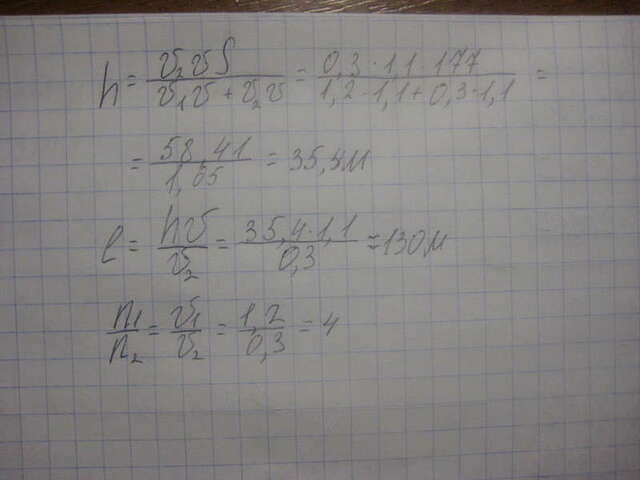 h = υ₂υS / (υ₁υ + υ₂υ) = 0,3 · 1,1 · 177 / (1,2 · 1,1 + 0,3 · 1,1) =
= 58,41 / 1,65 = 35,4м
l = hυ / υ₂ = 35,4 · 1,1 / 0,3 = 130м
n₁ / n₂ = υ₁ / υ₂ = 1,2 / 0,3 = 4